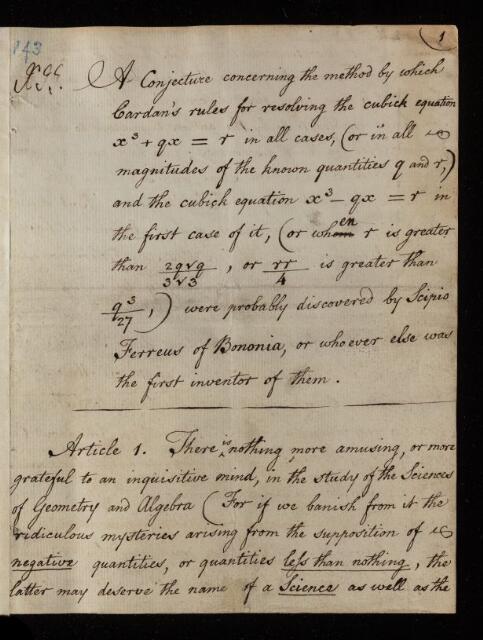 P43
1
A Conjecture concerning the method by which
Cardan's rules for resolving the cubick equation
x³ + qx = r in all cases, (or in all
magnitudes of the known quantities q and r,)
and the cubick equation x³ - qx = r in
the first case of it, (or when r is greater
than 2q√q / 3√3, or rr / 4 is greater than
q³ / 27,) were probably discovered by Scipio
Ferreus of Bononia, or whoever else was
the first inventor of them.
Article 1. There is nothing more amusing, or more
grateful to an inquisitive mind, in the study of the Sciences
of Geometry and Algebra (For if we banish from it the
ridiculous mysteries arising from the supposition of
negative quantities, or quantities less than nothing, the
latter may deserve the name of a Science as well as the